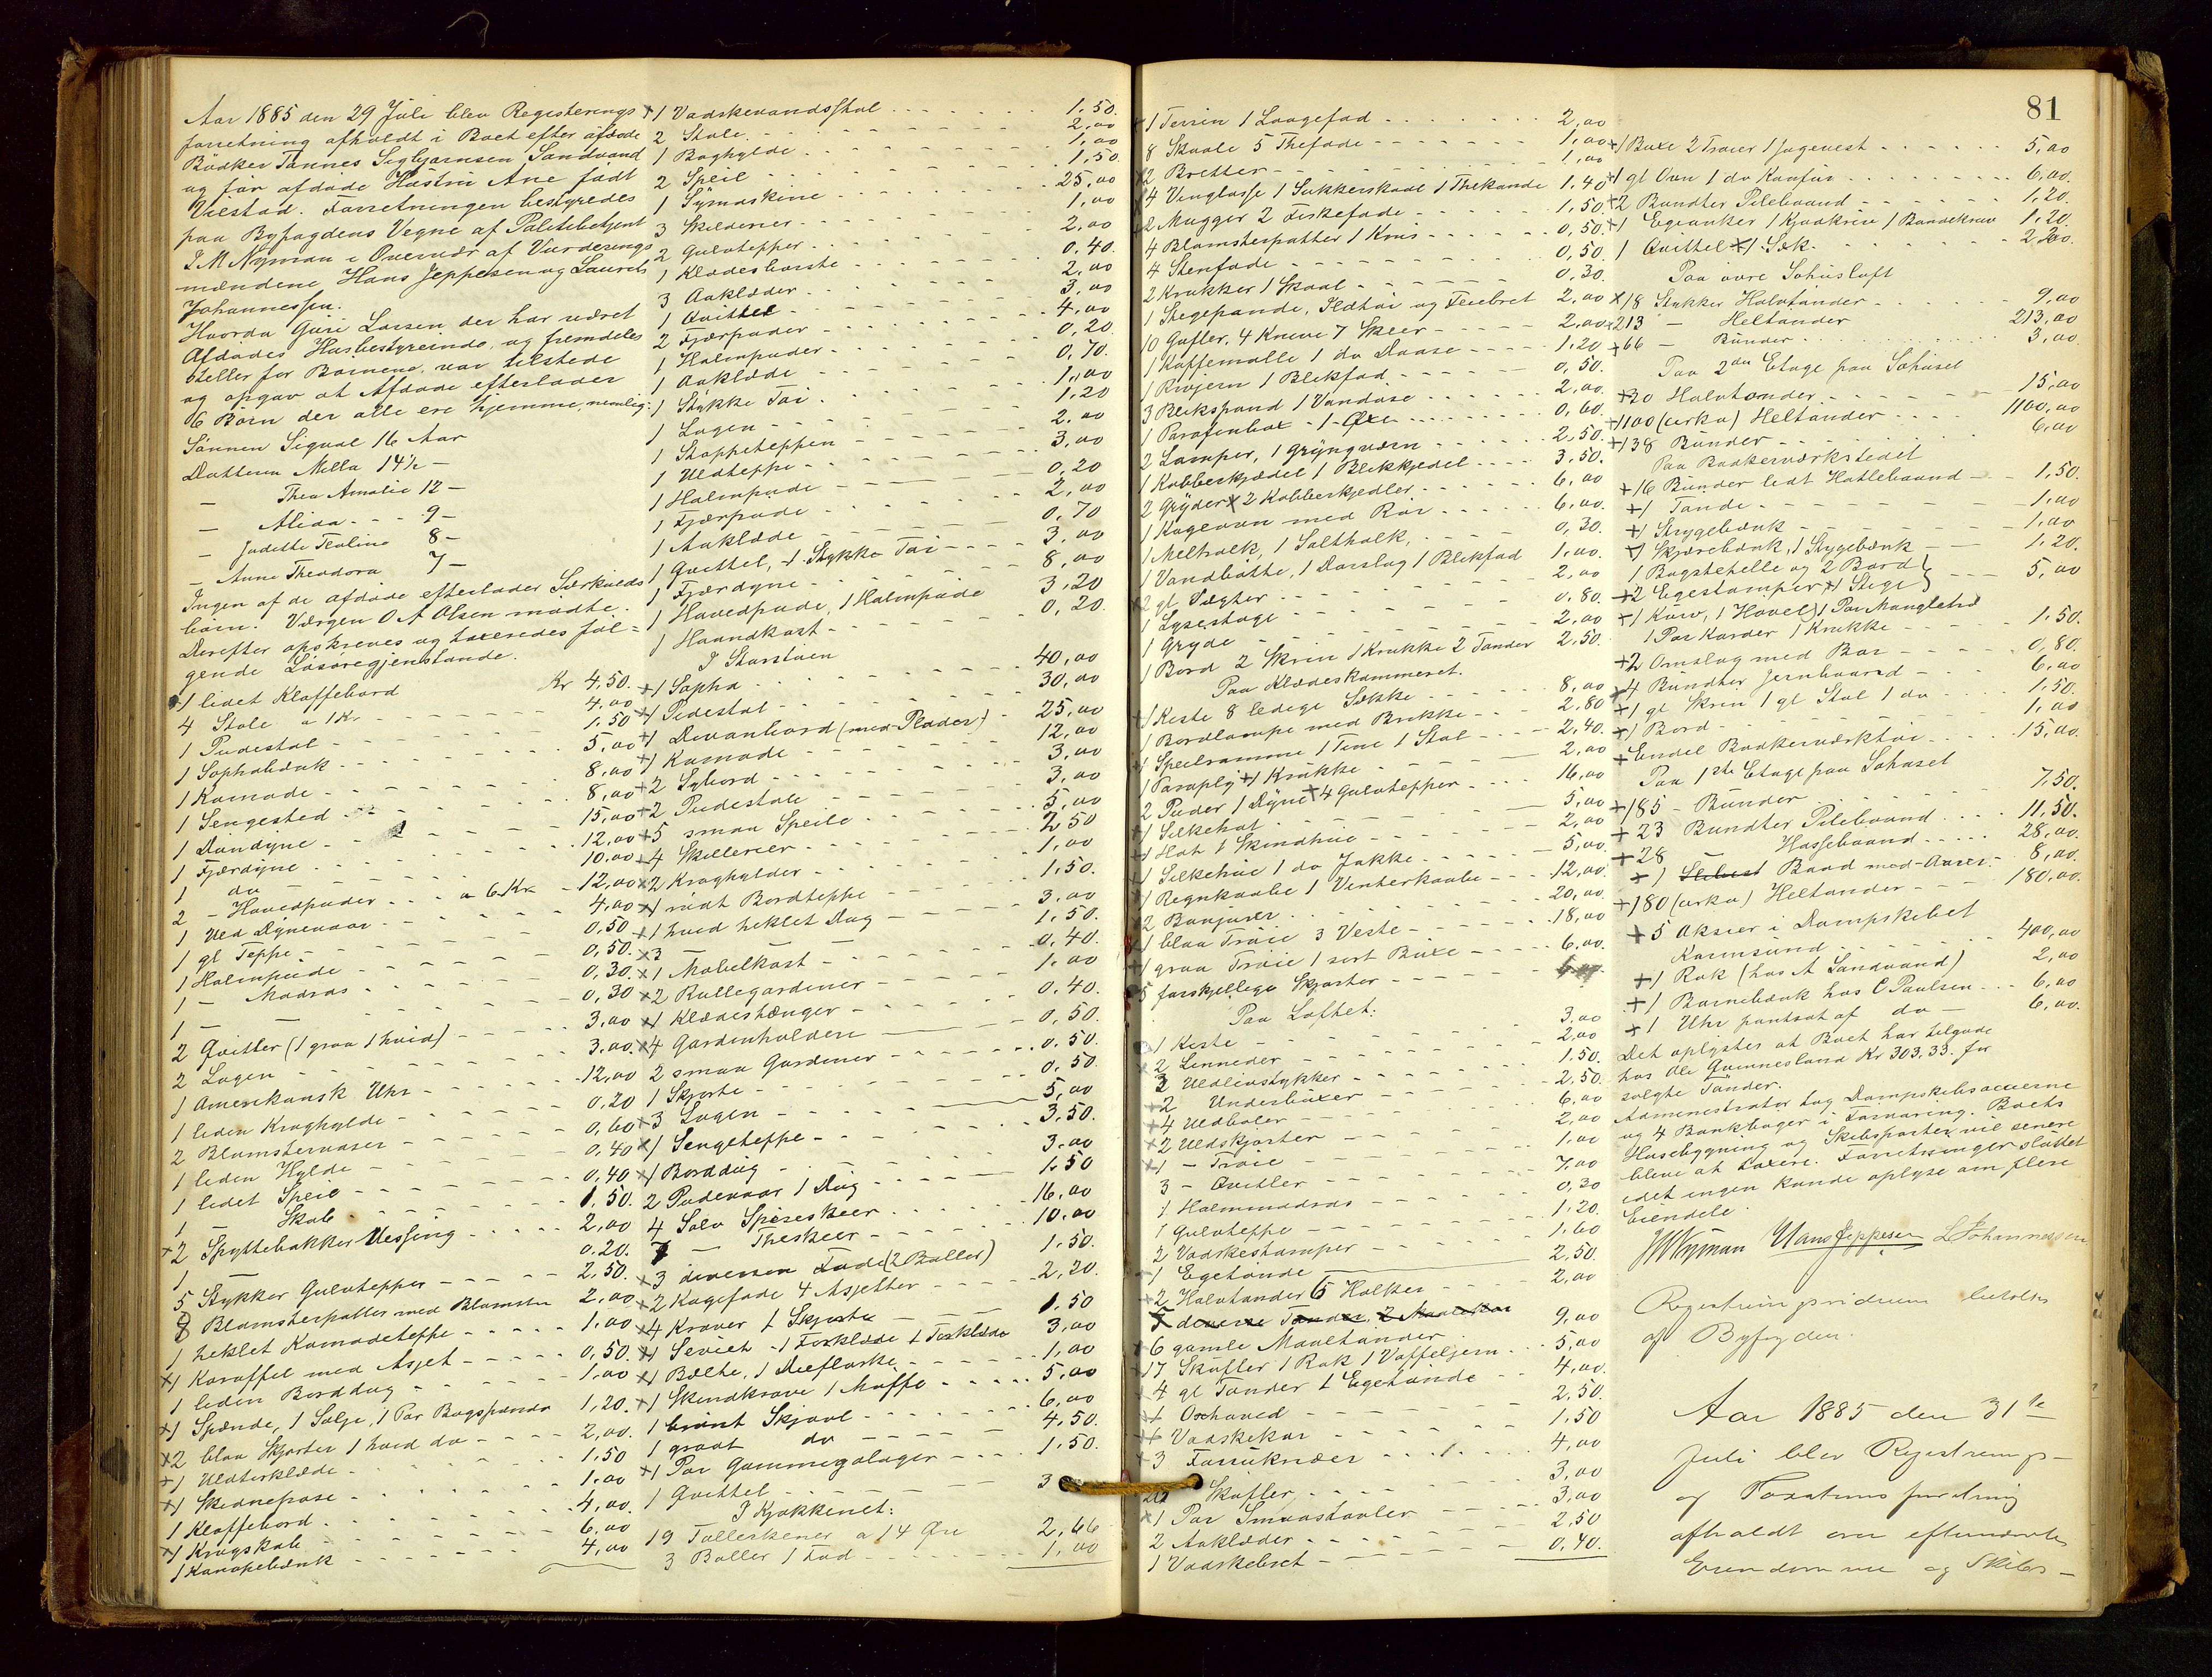 Aar 1885 den 29 Juli blev Registerings
forretning afholdt i Boet efter afdøde
Bødker Tønnes Sigbjørnsen Sandvand
og før afdøde Hustru Ane født
Viestad. Forretningen bestyredes
paa Byfogdens Vegne af Politibetjent
J M Nyman i Overvær af Vurderings
mændene Hans Jeppesen og Laurets
Johannessen.
Hvorda Guri Larsen der har været
Afdødes Husbestyrerinde, og fremdeles
steller for Børnene, var tilstede
og opgav at Afdøde efterlader
6 Børn der alle ere hjemme, nemlig:
Sønnen Sigval 16 Aar
Datteren Nilla 14½ —
— Thea Amalie 12 —
— Alida - - - 9 —
— Jadette Teoline 8 —
— Anne Theodora 7 —
Ingen af de afdøde efterlader Særkulds
børn. Værgen O A Olsen mødte.
Derefter opskreves og taxeredes føl=
gende Løsøregjenstande.
1 lidet Klaffebord Kr 4,50.
4 Stole a 1 Kr 4,00
1 Pidestal 1,50
1 Sophabænk 5,00
1 Komode 8,00
1 Sengested 8,00
1 Dundyne 15,00
1 Fjærdyne 12,00
1 do 10,00
2 - Hovedpuder a 6 Kr 12,00
1 Uld Dynevaar 4,00
1 gl Teppe 0,50
1 Halmpude 0,50.
1 — Madras 0,30.
1 — 0,30
2 Qvitler (1 graa 1 hvid) 3,00
2 Lagen 3,00.
1 Amerikansk Uhr 12,00
1 liden Kraghylde 0,20
2 Blomstervaser 0,60
1 liden Hylde 0,40
1 lidet Speil 0,40
1 Skab 1,50.
+2 Spyttebakker Messing 2,00
1 — 0,20.
5 Stykker Gulvtepper 2,50.
8 Blomsterpotter med Blomster 2,00
1 heklet Komodeteppe 1,00
+1 Karaffel med Asjet 0,50.
1 liden Borddug 1,00
+1 Spænde, 1 Sølje, 1 Par Bugspænder 1,20.
+2 blaa Skjorter 1 hvid do 2,00.
+1 Uldtørklæde 1,50
+1 Skindpose 1,00
1 Klaffebord 4,00.
+1 Kragskab 6,00
1 Kanapebænk 4,00
+1 Vaskevandsstol 1,50.
2 Stole 2,00
1 Baghylde 1,00
2 Speil 1,50.
1 Symaskine 25,00
3 Skilderier 1,00
2 Gulvtepper 2,00
1 Klædesbørste 0,40.
3 Aaklæder 2,00
1 Qvittel 3,00
2 Fjærpuder 4,00
1 Halmpuder 0,20
1 Aaklæde 0,70.
1 Stykke Tøi 1,00
1 Lagen 1,20
1 Stoppeteppen 2,00
1 Uldteppe 3,00
1 Halmpude 0,20
1 Fjærpude 2,00
1 Aaklæde 0,70
1 Qvittel, 1 Stykke Tøi 3,00
1 Fjærdyne 8,00
1 Hovedpude, 1 Halmpude 3,20
1 Haandkost 0,20
I Storstuen
+1 Sopha 40,00
+1 Pidestal 30,00
+1 Divanbord (med Plader) 25,00
+1 Komode 12,00
+2 Sybord 3,00
+2 Pidestale 3,00
+5 smaa Speile 5,00
+4 Skillerier 2,50
+2 Kraghylder 1,00
+1 rødt Bordteppe 1,50.
+1 hvid heklet Dug 3,00
+3 — 1,50.
+1 Møbelkost 0,40.
+2 Rullegardiner 1,00
+1 Klædeshænger 0,40.
+4 Gardinholdere 0,50.
2 smaa Gardiner 0,50.
1 Skjorte 0,50.
+3 Lagen 5,00
+1 Sengeteppe 3,50.
+1 Borddug 3,00
2 Pudevaar 1 Dug 1,50
4 Sølv Spiseskeer 16,00
7 — Theskeer 10,00
+3 diverse Fade (2 Boller) 1,50.
+2 Kagefade 4 Asjetter 2,20.
+4 Kraver 1 Skjorte 1,50
+1 Serviet 1 Forklæde 1 Tørklæde 3,00
+1 Bælte, 1 Dieflaske 1,00
+1 Skindkrave 1 Muffe 5,00
1 brunt Skjavl 6,00
1 graat do 4,50.
+1 Par Gammegalager 1,50.
1 Qvittel 3
I Kjøkkenet:
19 Tallerkener a 14 Øre 2,66
3 Boller 1 Fad 1,00
81
+1 Terrin 1 Laagefad 2,00
8 Skaale 5 Thefade 1,00
+2 Bretter 1,00
+4 Vinglasse 1 Sukkerskaal 1 Thekande 1,40
+2 Mugger 2 Fiskefade 1,50.
4 Blomsterpotter 1 Krus 0,50.
4 Stenfade 0,50.
2 Krukker 1 Skaal 0,30.
1 Stegepande, Ildtøi og Feiebret 2,00
10 Gafler, 4 Knive 7 Skeer 2,00
1 Kaffemølle 1 do Daase 1,20
1 Rivjern 1 Blikfad 0,50.
3 Blikspand 1 Vandøse 2,00.
1 Parafinbox 1 Øxe 0,60.
2 Lamper, 1 Grynqværn 2,50.
1 Kobberkjædel 1 Blikkjedel 3,50.
2 Gryder + 2 Kobberkjedler 6,00
1 Kogeovn med Rør 6,00
1 Melholk, 1 Saltholk, 0,30.
1 Vandbøtte, 1 Dørslag 1 Blikfad 1,00.
+2 gl Vægter 2,00
1 Lysestage 0,80.
1 Gryde 2,00
1 Bord 2 Skrin 1 Krukke 2 Tønder 2,50.
Paa Klædeskammeret.
+1 Kiste 8 ledige Sække 8,00
1 Bordlampe med Brikke 2,80
+1 Speilramme 1 Tine 1 Stol 2,40.
1 Paraply + 1 Krukke 2,00
2 Puder 1 Dyne + 4 Gulvtepper 16,00
+1 Silkehat 5,00
+1 Hat 1 Skindhue 2,00
1 Silkehue 1 do Jakke 5,00.
1 Regnkaabe 1 Vinterkaabe 12,00.
+2 Bonjurer 20,00.
+1 blaa Trøie 3 Veste 18,00
+1 graa Trøie 1 sort Buxe 6,00.
5 forskjellige Skjorter
Paa Loftet:
1 Kiste 3,00
+2 Linneder 2,00
3 Uldlivstykker 1,50.
+2 Underbuxer 2,50.
+4 Uldboler 6,00
+2 Uldskjorter 2,00
+1 — Trøie 1,00
3 — Qvitler 7,00
1 Halmmadras 0,30
1 Gulvteppe 1,20.
2 Vadskestamper 1,60
+1 Egetønde 2,50.
+2 Halvtønder 6 Holker 2,00
5 diverse Tønder,
+6 gamle Maaltønder 9,00
+17 Skufler 1 Rok 1 Vaffeljern 5,00
+4 gl Tønder 1 Egetønde 4,00.
+1 Oxhoved 2,50.
+1 Vadskekar 1,50
+3 Farrukræer 4,00
20 Skufler 3,00
+1 Par Smaastøvler 3,00
2 Aaklæder 2,50
1 Vadskebret 0,40.
+1 Buxe 2 Trøier 1 Jagevest 5,00
+1 gl Ovn 1 do Komfur 6,00.
+2 Bundter Pilebaand 1,20.
+1 Egeanker 1 Krokkniv 1 Baandekniv 1,20.
1 Qvittel + 1 Sæk
Paa øvre Søhusloft
+18 Stykker Halvtønder 9,00
+213 — Heltønder 213,00
+66 — Bunder 3,00.
Paa 2den Etage paa Søhuset
+30 Halvtønder 15,00
+1100 (cirka) Heltønder 1100,00
+138 Bunder 6,00
Paa Bødkerværkstedet
+16 Bunder lidt Hatlebaand 1,50.
+1 Tønde 1,00
+1 Strygebænk 1,00
+1 Skjærebænk, 1 Strygebænk 1,20.
1 Bugstetelle og 2 Bord
+2 Egestamper, + 1 Stige 5,00
+1 Kurv, 1 Høvel, 1 Par Mangletræ
1 Par Karder 1 Krukke 1,50.
+2 Omslag med Bor 0,80.
+4 Bundter Jernbaand 6,00
+1 gl Skrin 1 gl Stol 1 do 1,50.
+1 Bord 1,00
+Endel Bødkerværktøi 15,00.
Paa 1ste Etage paa Søhuset
+185 - Bunder 7,50.
+23 Bundter Pilebaand 11,50.
+28 — Hasselbaand 28,00.
+1 Baad med Aarer 8,00.
+180 (cirka) Heltønder 180,00.
+5 Aksier i Dampskibet
Karmsund 400,00
+1 Rok (hos A Sandvand) 2,00
+1 Barnebænk hos C Paulsen 6,00
+1 Uhr pantsat af do — 6,00.
Det oplystes at Boet har tilgode
hos Ole Gunnesland Kr 303,33. for
solgte Tønder.
Administrator tog Dampskibsaxierne
og 4 Bankbøger i Forvaring. Boets
Husebygning og Skibsparter vil senere
blive at taxere. Forretninger sluttet
idet ingen kunde oplyse om flere
Eiendele.
J M Nyman Hans Jeppesen L Johannessen
af Byfogden.
Aar 1885 den 31te
Juli blev Registrerings-
og Taxationsforretning
afholdt over efternævnte
Eiendomme og Skibs-